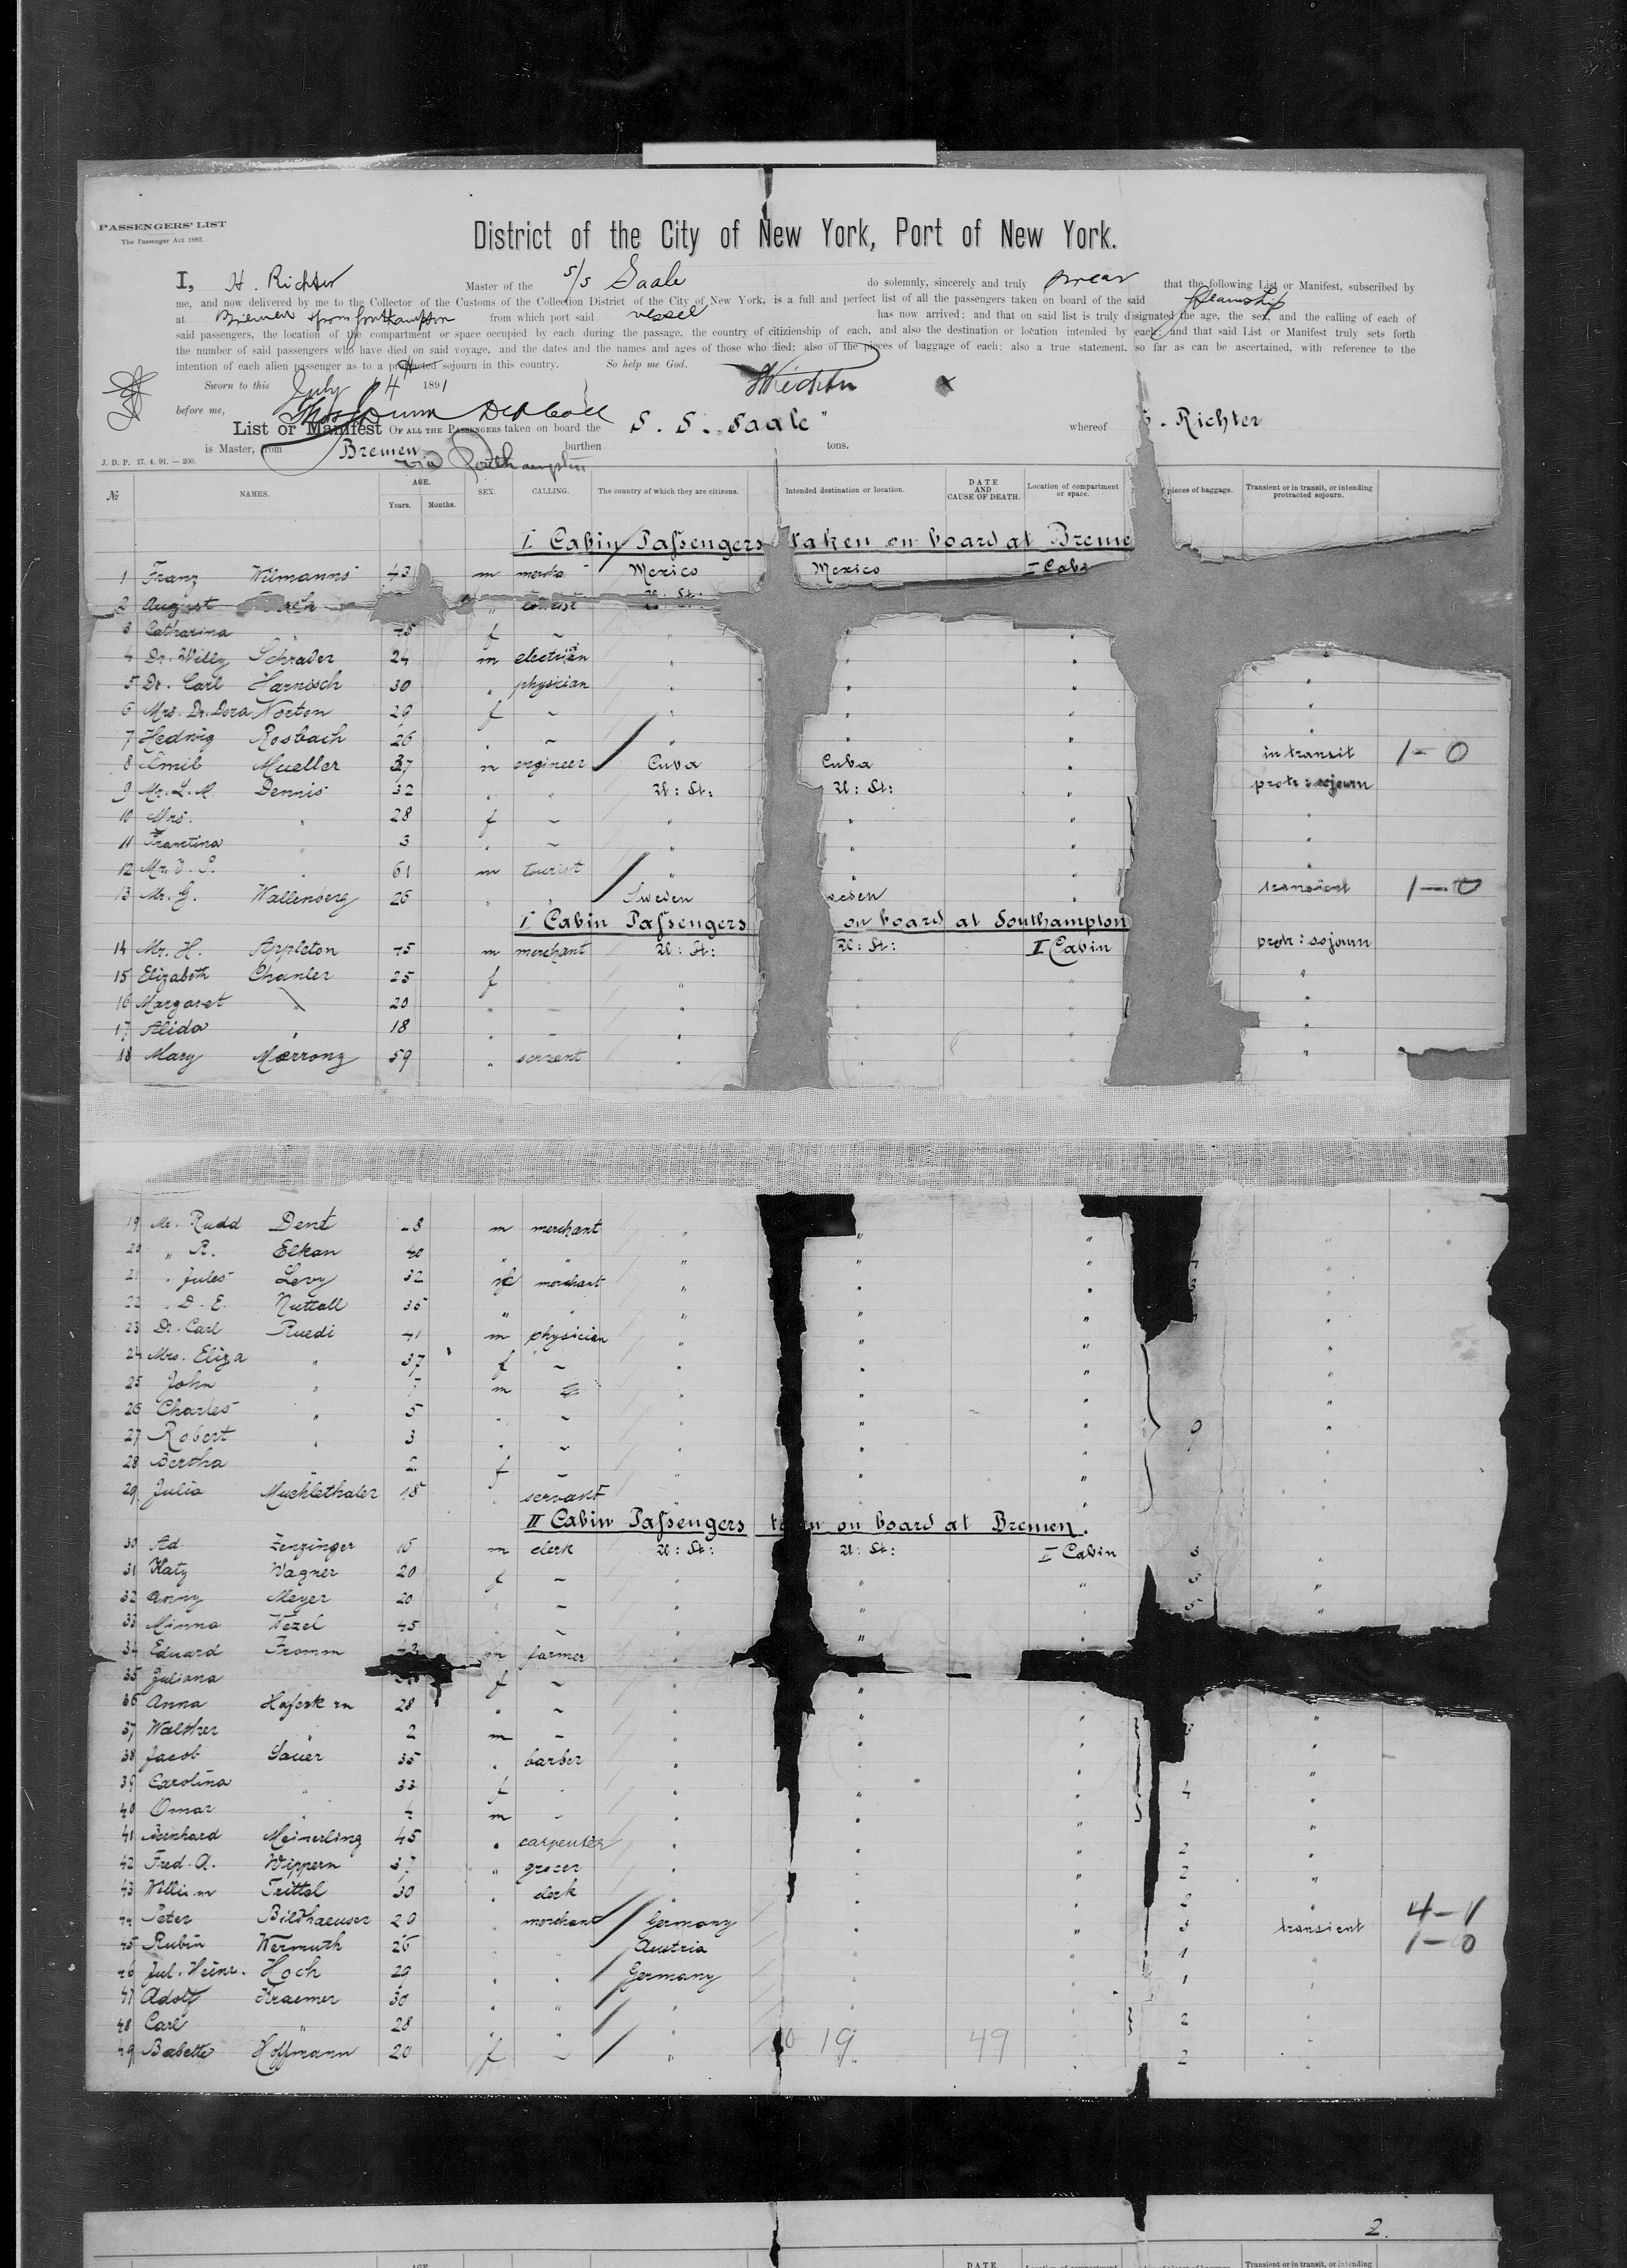 PASSENGERS' LIST
The Passenger Act 1882.
District of the City of New York, Port of New York.
I, H. Richter Master of the s/s Saale do solemnly, sincerely and truly swear that the following List or Manifest, subscribed by
me, and now delivered by me to the Collector of the Customs of the Collection District of the City of New York, is a full and perfect list of all the passengers taken on board of the said steamship
at Bremen & from Southampton from which port said vessel has now arrived; and that on said list is truly disignated the age, the sex, and the calling of each of
said passengers, the location of the compartment or space occupied by each during the passage, the country of citizienship of each, and also the destination or location intended by each; and that said List or Manifest truly sets forth
the number of said passengers who have died on said voyage, and the dates and the names and ages of those who died; also of the pieces of baggage of each; also a true statement, so far as can be ascertained, with reference to the
intention of each alien passenger as to a protracted sojourn in this country. So help me God.
Sworn to this July 4 1891 HRichter x
before me,
List or Manifest OF ALL THE PASSENGERS taken on board the S. S. "Saale" whereof . Richter
is Master, from Bremen via Southampton burthen tons.
J. D. P. 17. 4. 91. — 200.
№ NAMES. AGE. Years. Months. SEX. CALLING. The country of which they are citizens. Intended destination or location. DATE AND CAUSE OF DEATH. Location of compartment or space. pieces of baggage. Transient or in transit, or intending protracted sojourn.
I Cabin Passengers taken on board at Breme
1 Franz Wilmanns 43 m mercha Mexico Mexico I Cabi
2 August " tourist U: St:
3 Catharina " f –
4 Dr. Willy Schrader 24 m electrian " " "
5 Dr. Carl Harnisch 30 " physician " " " "
6 Mrs. Dr. Dora Norton 29 f – " " " "
7 Hedwig Rosbach 26 " – " " " "
8 Emil Mueller 37 m engineer Cuba Cuba " in transit 1–0
9 Mr. L. M. Dennis 32 " " U: St: U: St: " protr: sojourn
10 Mrs. " 28 f – " " " "
11 Frantina " 3 " – " " " "
12 Mr. J. P. " 61 m tourist " " " "
13 Mr. G. Wallenberg 26 " " Sweden weden " transient 1–0
I Cabin Passengers on board at Southampton
14 Mr. H. Appleton 45 m merchant U: St: U: St: I Cabin protr: sojourn
15 Elizabeth Chanler 25 f – " " " "
16 Margaret " 20 " – " " " "
17 Alida " 18 " – " " " "
18 Mary Marrony 59 " servant " " " "
19 Mr. Rudd Dent m merchant " " " "
20 " R. Elkan 40 " " " " " "
21 " Jules Levy 32 m merchant " " " "
22 " D. E. Nuttall 35 " " " " " "
23 Dr. Carl Ruedi 41 m physician " " " "
24 Mrs. Eliza " 37 f – " " " "
25 John " 7 m – " " " "
26 Charles " 5 " – " " " "
27 Robert " 3 " – " " " 9 "
28 Bertha " 2 f – " " " "
29 Julia Muehlethaler 18 " servant " " " "
II Cabin Passengers taken on board at Bremen.
30 Ad. Zenzinger 16 m clerk U: St: U: St: I Cabin 3 "
31 Katy Wagner 20 f – " " " 3 "
32 Anny Meyer 20 " – " " " 5 "
33 Minna Wezel 45 " – " " "
34 Eduard Fromm m farmer "
35 Juliana f – " "
36 Anna Haferk rn 28 " – " " " "
37 Walther " 2 m – " " " 3 "
38 Jacob Sauer 35 " barber " " " "
39 Carolina " 33 f – " " " 4 "
40 Omar " 4 m – " " " "
41 Bernhard Meinerling 45 " carpenter " " " 2 "
42 Fred. A. Wippern 37 " grocer " " " 2 "
43 William Trittel 30 " clerk " " " 2 "
44 Peter Bildhaeuser 20 " merchant Germany " " 3 transient 4–1
45 Rubin Wermuth 26 " " Austria " " 1 " 1–0
46 Jul. Heinr. Hoch 29 " " Germany " " 1 "
47 Adolf Kraemer 30 " " " " " "
48 Carl " 28 " " " " " 2 "
49 Babette Hoffmann 20 f – " 19 49 " 2 "
2.
AGE
DATE
Transient or in transit, or intending